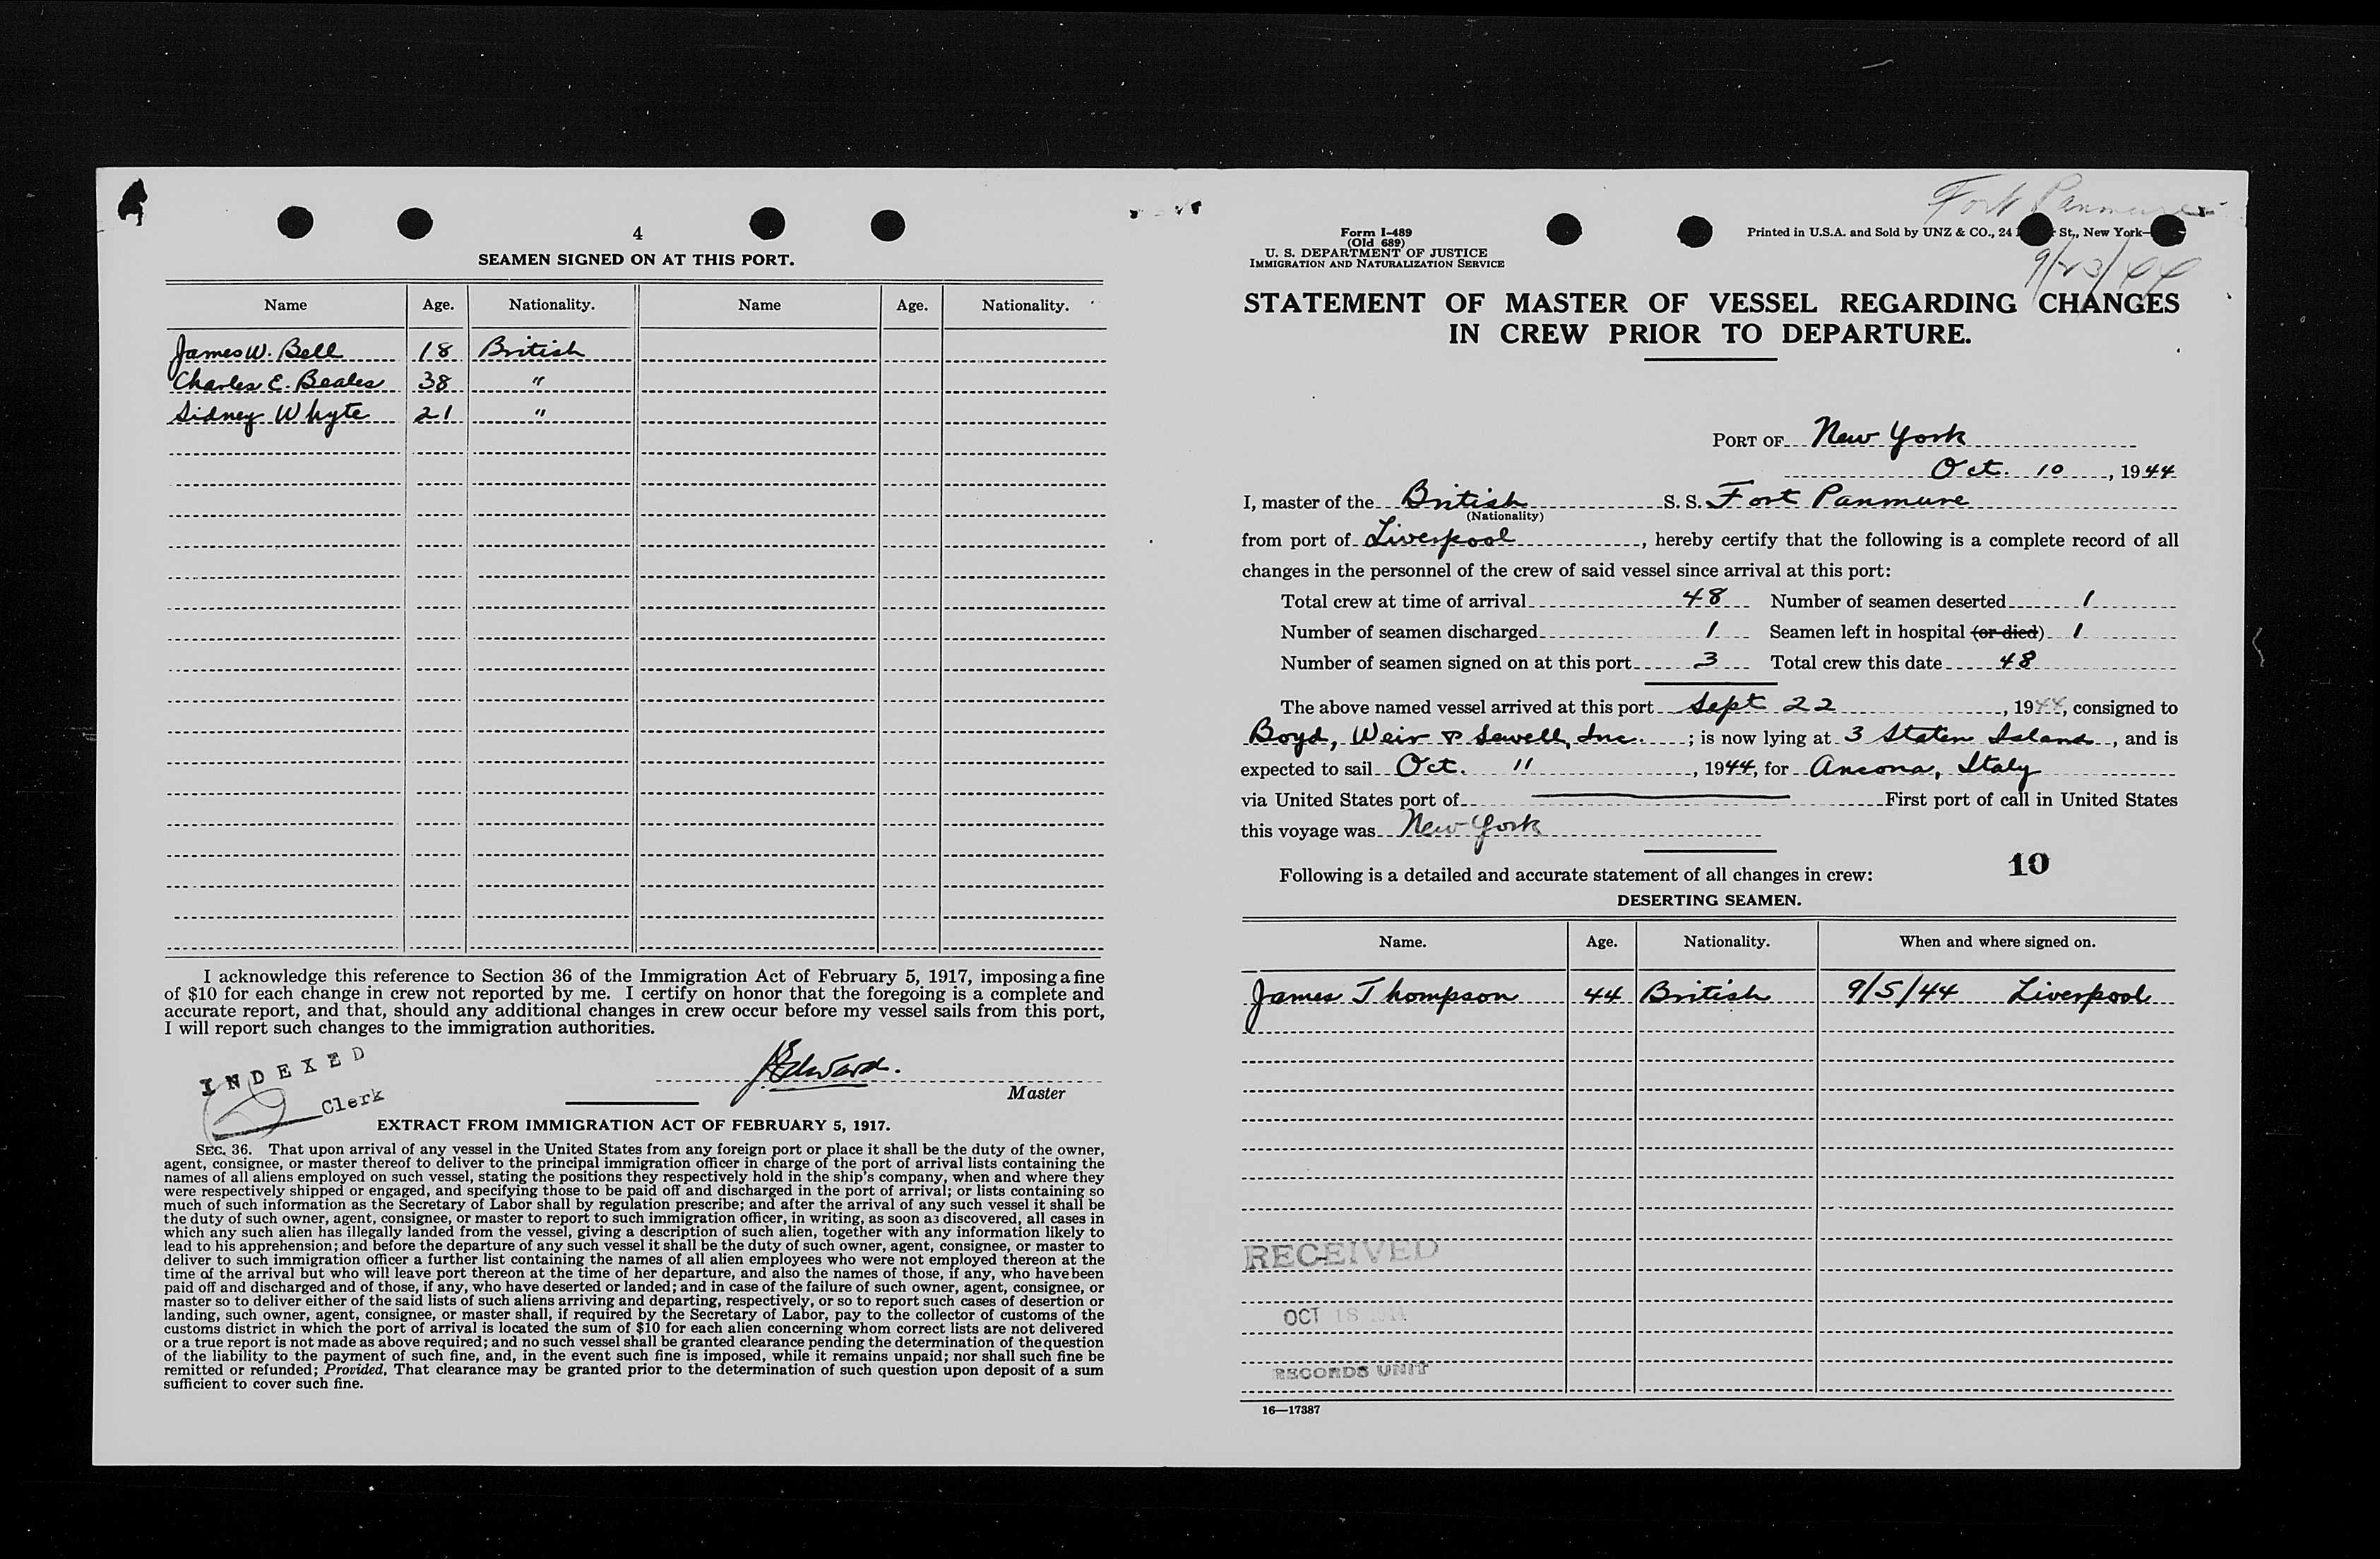 4
SEAMEN SIGNED ON AT THIS PORT.
Name Age. Nationality. Name Age. Nationality.
James W. Bell 18 British
Charles E. Beales 38 "
Sidney Whyte 21 "
I acknowledge this reference to Section 36 of the Immigration Act of February 5, 1917, imposing a fine
of $10 for each change in crew not reported by me. I certify on honor that the foregoing is a complete and
accurate report, and that, should any additional changes in crew occur before my vessel sails from this port,
I will report such changes to the immigration authorities.
INDEXED
Clerk
Master
EXTRACT FROM IMMIGRATION ACT OF FEBRUARY 5, 1917.
SEC. 36. That upon arrival of any vessel in the United States from any foreign port or place it shall be the duty of the owner,
agent, consignee, or master thereof to deliver to the principal immigration officer in charge of the port of arrival lists containing the
names of all aliens employed on such vessel, stating the positions they respectively hold in the ship's company, when and where they
were respectively shipped or engaged, and specifying those to be paid off and discharged in the port of arrival; or lists containing so
much of such information as the Secretary of Labor shall by regulation prescribe; and after the arrival of any such vessel it shall be
the duty of such owner, agent, consignee, or master to report to such immigration officer, in writing, as soon as discovered, all cases in
which any such alien has illegally landed from the vessel, giving a description of such alien, together with any information likely to
lead to his apprehension; and before the departure of any such vessel it shall be the duty of such owner, agent, consignee, or master to
deliver to such immigration officer a further list containing the names of all alien employees who were not employed thereon at the
time of the arrival but who will leave port thereon at the time of her departure, and also the names of those, if any, who have been
paid off and discharged and of those, if any, who have deserted or landed; and in case of the failure of such owner, agent, consignee, or
master so to deliver either of the said lists of such aliens arriving and departing, respectively, or so to report such cases of desertion or
landing, such owner, agent, consignee, or master shall, if required by the Secretary of Labor, pay to the collector of customs of the
customs district in which the port of arrival is located the sum of $10 for each alien concerning whom correct lists are not delivered
or a true report is not made as above required; and no such vessel shall be granted clearance pending the determination of the question
of the liability to the payment of such fine, and, in the event such fine is imposed, while it remains unpaid; nor shall such fine be
remitted or refunded; Provided, That clearance may be granted prior to the determination of such question upon deposit of a sum
sufficient to cover such fine.
Fort Panmure
9/23/44
Form I-489
(Old 689)
U. S. DEPARTMENT OF JUSTICE
IMMIGRATION AND NATURALIZATION SERVICE
Printed in U.S.A. and Sold by UNZ & CO., 24 St., New York
STATEMENT OF MASTER OF VESSEL REGARDING CHANGES
IN CREW PRIOR TO DEPARTURE.
PORT OF New York
Oct. 10, 1944
I, master of the British S. S. Fort Panmure
(Nationality)
from port of Liverpool, hereby certify that the following is a complete record of all
changes in the personnel of the crew of said vessel since arrival at this port:
Total crew at time of arrival 48 Number of seamen deserted 1
Number of seamen discharged 1 Seamen left in hospital (or died) 1
Number of seamen signed on at this port 3 Total crew this date 48
The above named vessel arrived at this port Sept 22, 1944, consigned to
Boyd, Weir & Sewell, Inc.; is now lying at 3 Staten Island, and is
expected to sail Oct. 11, 1944, for Ancona, Italy
via United States port of First port of call in United States
this voyage was New York
Following is a detailed and accurate statement of all changes in crew:
10
DESERTING SEAMEN.
Name. Age. Nationality. When and where signed on.
James Thompson 44 British 9/5/44 Liverpool
RECEIVED
OCT 18 1944
RECORDS UNIT
16—17387